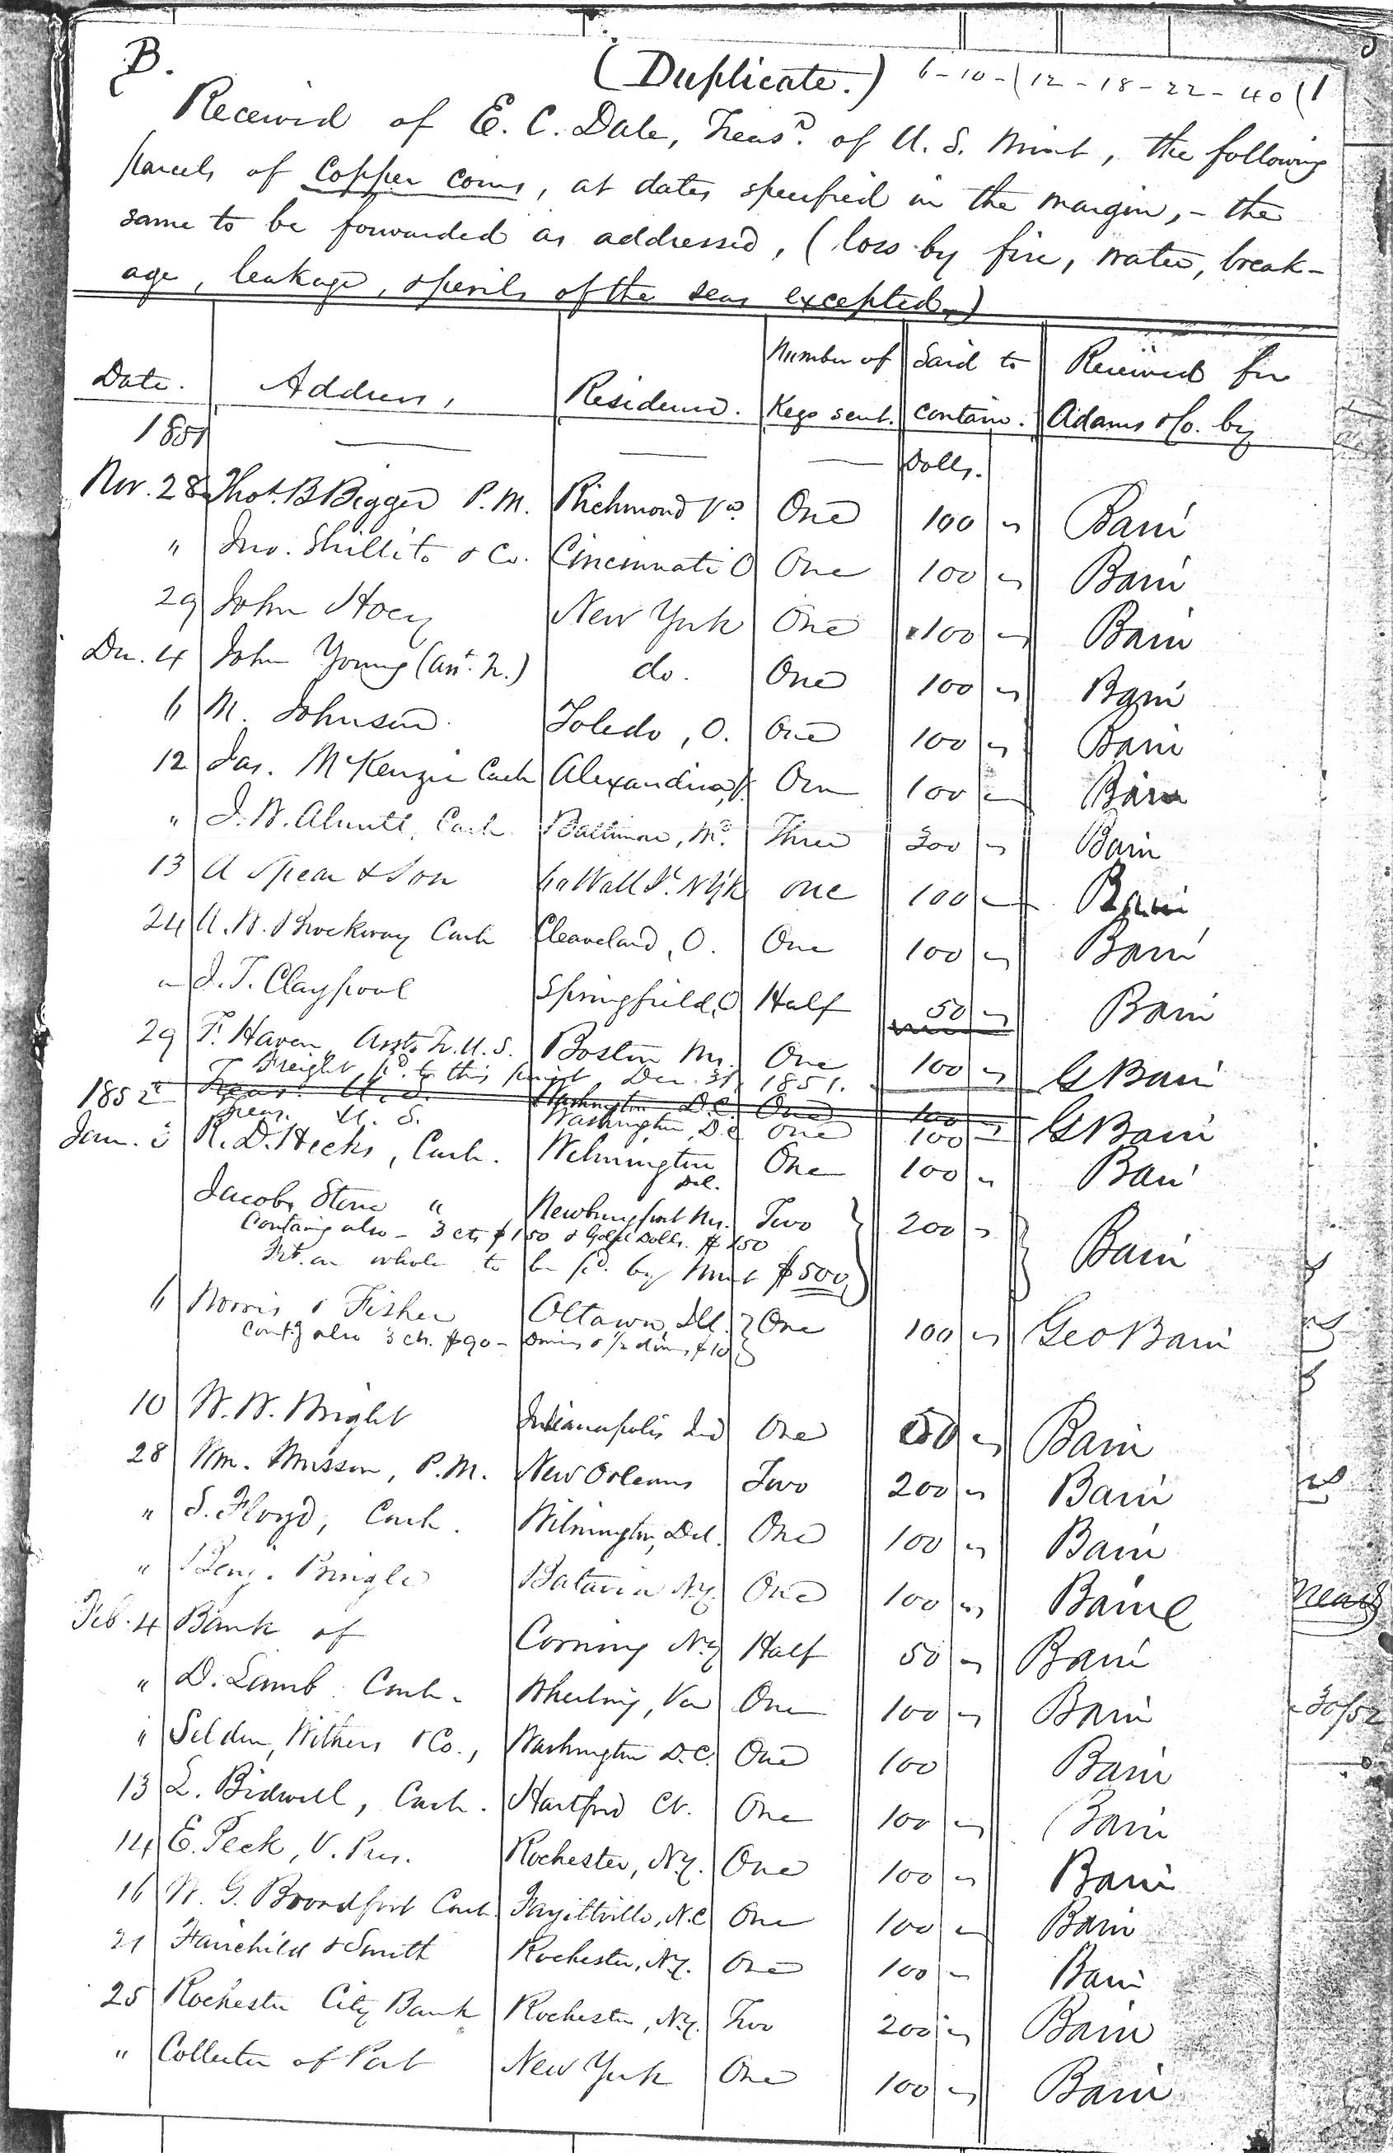 B.
(Duplicate.) 6-10-(12-18-22-40(1
Received of E. C. Dale, Treasr. of U. S. Mint, the following
parcels of copper coins, at dates specified in the margin, - the
same to be forwarded as addressed, (loss by fire, water, break-
age, leakage, & perils of the seas excepted.)
Date. Address, Residence. Number of Kegs sent. Said to contain. Received for Adams & Co. by
1851 Dolls.
Nov. 28 Thos. B Bigger P.M. Richmond Va. One 100 Bain
" Jno. Shillito & Co. Cincinnati O One 100 Bain
29 John Hoey New York One 100 Bain
Dec. 4 John Young (Asst. Tr.) do. One 100 Bain
6 M. Johnson Toledo, O. One 100 Bain
12 Jas. McKenzie Cash Alexandria, V. One 100 Bain
" J. W. Alnutt, Cash Baltimore, Md. Three 300 Bain
13 A Spear & Son Wall St. N Yk one 100 Bain
24 A. W. Brockway Cash Cleaveland, O. One 100 Bain
" J. T. Claypool Springfield, O Half 50 Bain
29 F. Haven Asst. Tr. U.S. Boston Ms. One 100 G Bain
Freight pd. to this point Dec. 31, 1851.
1852 Treas. U.S. Washington D.C. One 100
Treas. U.S. Washington, D.C. One 100 G Bain
Jan. 3 R. D. Hicks, Cash. Wilmington Del. One 100 Bain
Jacob Stone " Newburyport Ms. Two 200 Bain
Containg also - 3 cts $150 & Gold Dolls. $150
Frt. on whole to be pd. by Mint $500
6 Norris & Fisher Ottawa, Ill. One 100 Geo Bain
Contg. also 3 cts. $90 - Dimes & 1/2 dimes, $10
10 W. W. Wright Indianapolis Ind One 50 Bain
28 Wm. Musson, P.M. New Orleans Two 200 Bain
" S. Floyd, Cash. Wilmington, Del. One 100 Bain
" Benj. Pringle Batavia N.Y. One 100 Bain
Feb. 4 Bank of Corning N.Y Half 50 Bain
" D. Lamb Cash. Wheeling, Va One 100 Bain
" Selden, Withers & Co., Washington D.C. One 100 Bain
13 L. Bidwell, Cash. Hartford Ct. One 100 Bain
14 E. Peck, V. Pres. Rochester, N.Y. One 100 Bain
16 W. G. Broadfoot Cash. Fayettville, N.C One 100 Bain
21 Fairchild & Smith Rochester, N.Y. One 100 Bain
25 Rochester City Bank Rochester, N.Y. Two 200 Bain
" Collector of Port New York One 100 Bain
30/52